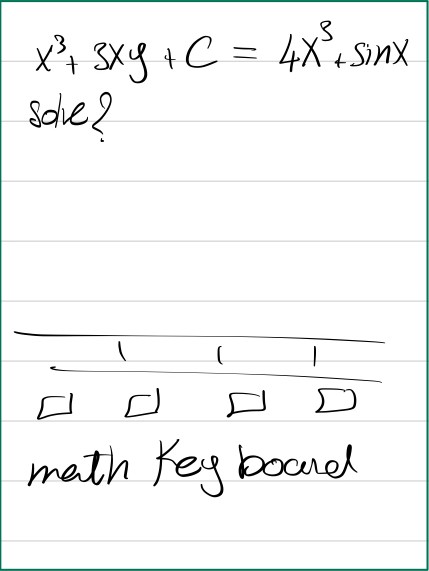 x³+ 3xy + C = 4x³+sinx
solve?
math Keyboard